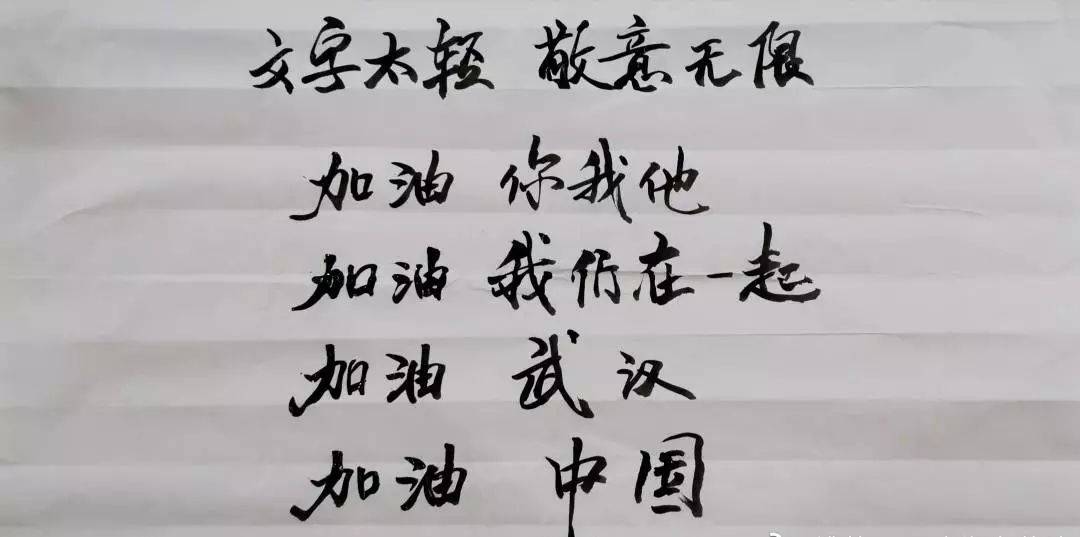 文字太轻 敬意无限
加油 你我他
加油 我们在一起
加油 武汉
加油 中国